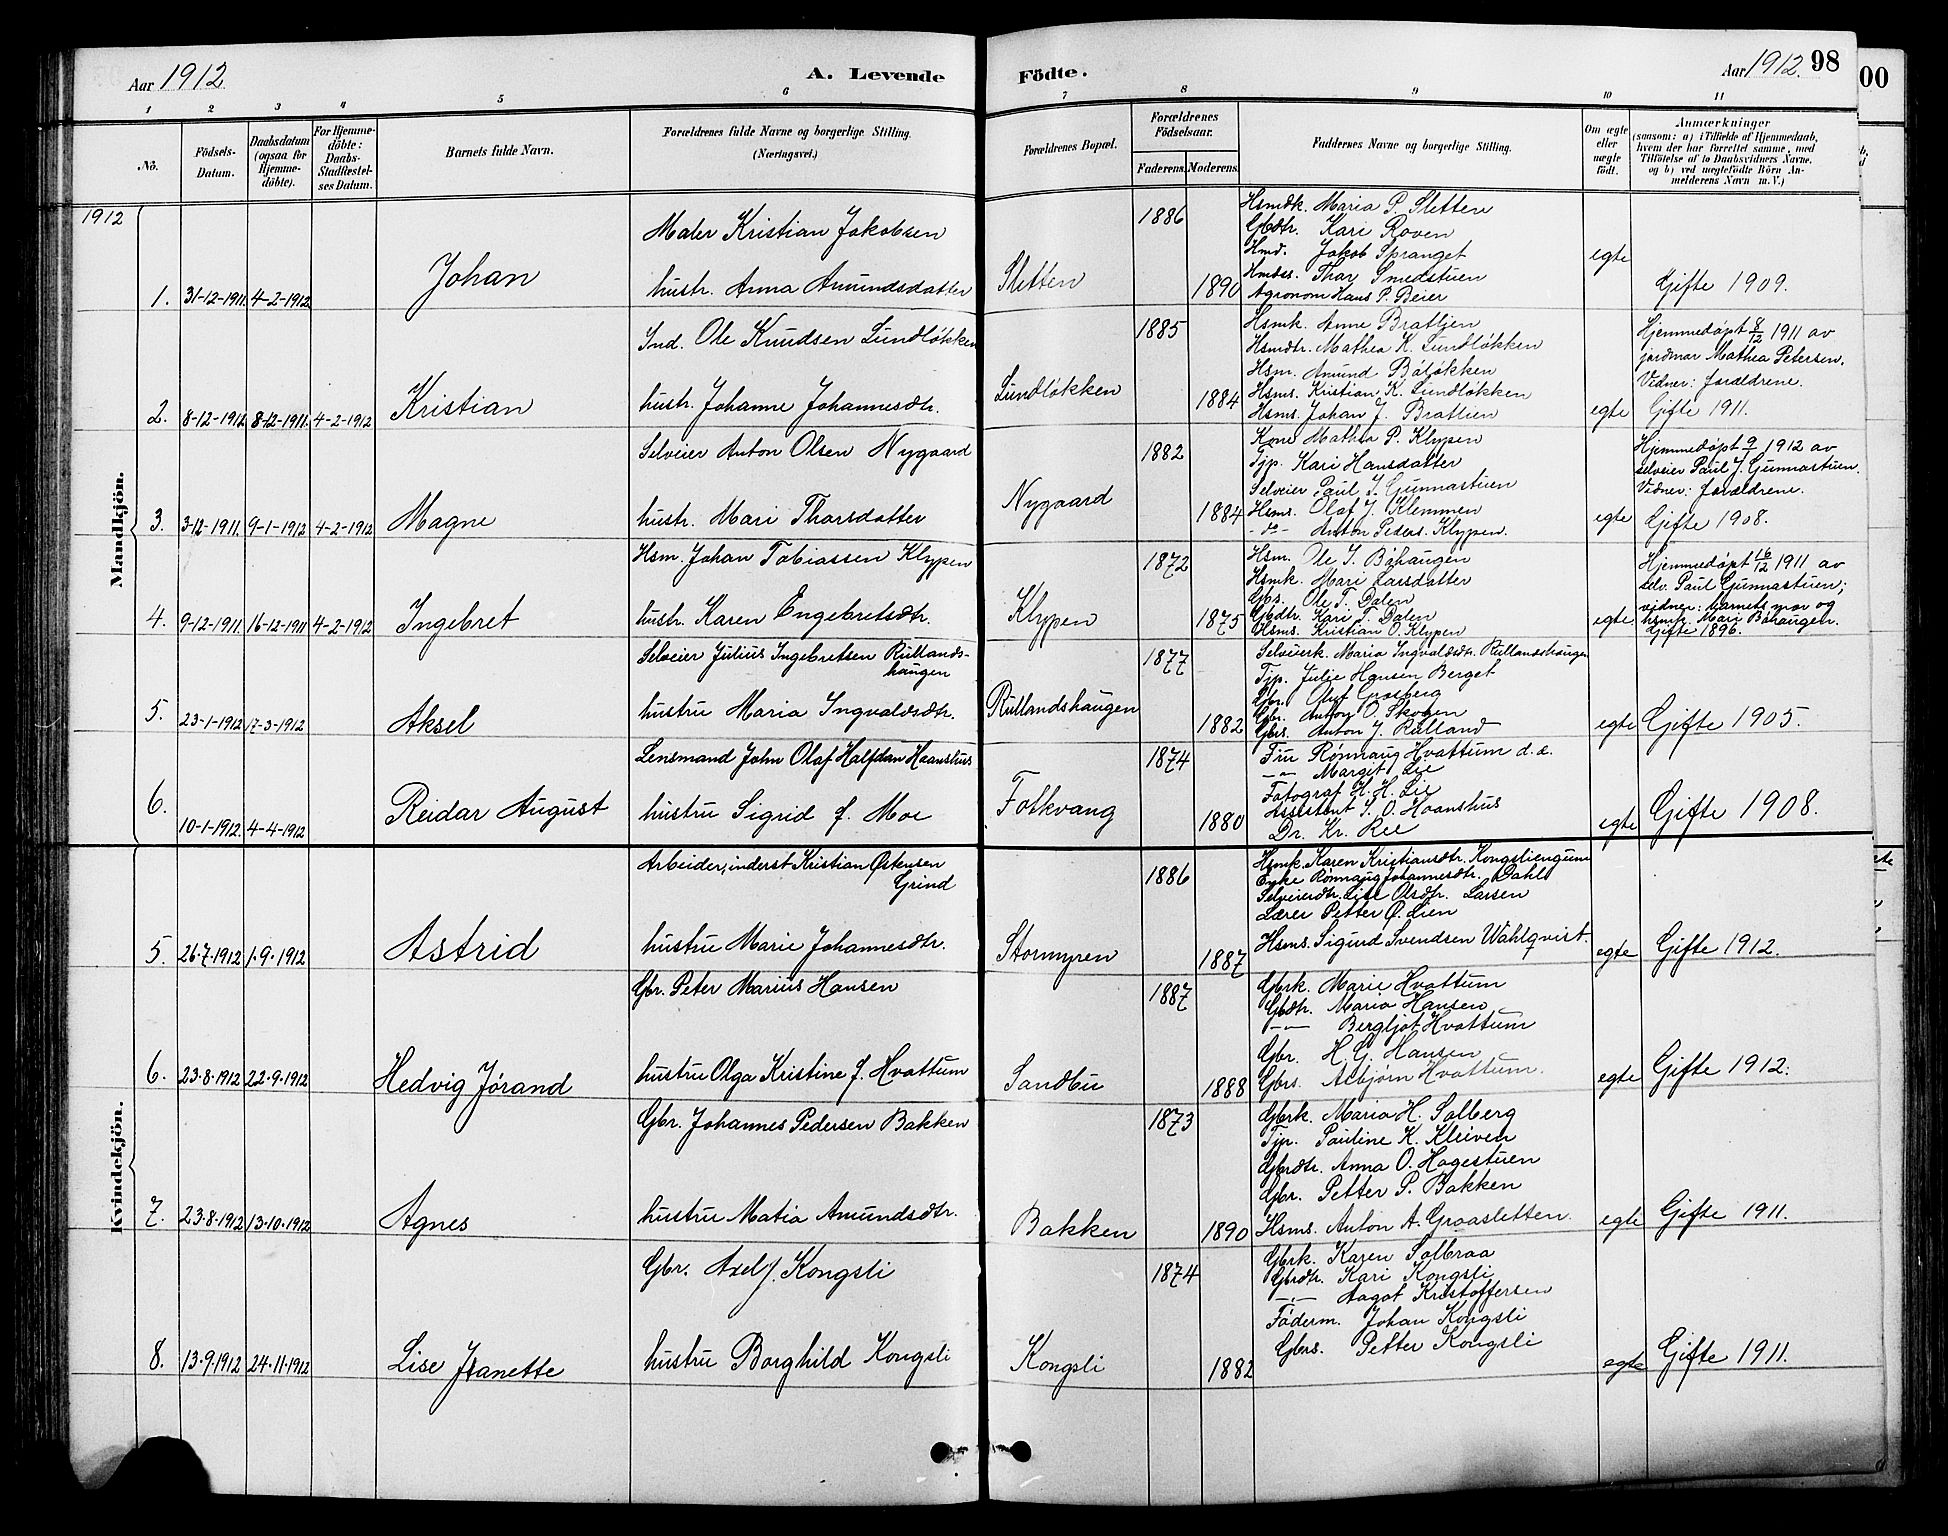 Aar 1912
A. Levende
Födte.
Aar 1912. 98
00
1 2 3 4 5 6 7 8 9 10 11
No.
Födsels-
Datum.
Daabsdatum
(ogsaa for
Hjemme-
döbte).
For Hjemme-
döbte:
Daabs-
Stadfæstel-
ses Datum.
Barnets fulde Navn.
Forældrenes fulde Navne og borgerlige Stilling.
(Næringsvei.)
Forældrenes Bopæl.
Forældrenes
Födselsaar.
Faderens. Moderens.
Faddernes Navne og borgerlige Stilling.
Om ægte
eller
uægte
født.
Anmærkninger
(saasom: a) i Tilfælde af Hjemmedaab,
hvem der har forrettet samme, med
Tilföielse af to Daabsvidners Navne,
og b) ved uægtefödte Börn An-
melderens Navn m. V.)
Mandkjön.
1912
1. 31-12-1911. 4-2-1912
Johan
Maler Kristian Jakobsen
hustr. Anna Amundsdatter
Sletten
1886
1890
Hsmdk. Maria P. Sletten
Gbdtr. Kari Roven
Hmd. Jakob Spranget
Hmdss. Thar Smedstuen
Agronom Hans P. Beier
egte
Gifte 1909.
2. 8-12-1912 8-12-1911. 4-2-1912
Kristian
Ind. Ole Knudsen Lundløkken
hustr. Johanne Johannesdtr.
Lundløkken
1885
1884
Hsmk. Anne Bratlien
Hsmdtr. Mathea K. Lundløkken
Hsm. Amund Baløkken
Hsms. Kristian K. Lundløkken
Hsms. Johan J. Bratlien
egte
Hjemmedøpt 8/12 1911 av
jordmor Mathea Petersen.
Vidner: forældrene.
Gifte 1911.
3. 3-12-1911. 9-1-1912 4-2-1912
Magne
Selveier Anton Olsen Nygaard
hustr. Mari Tharsdatter
Nygaard
1882
1884
Kone Mathea P. Klypen
Tjp. Kari Hansdatter
Selveier Paul J. Gunnastuen
Hsms. Olaf J. Klemmen
-do- Anton Peders. Klypen.
egte
Hjemmedøpt 9/1 1912 av
selveier Paul J. Gunnastuen.
Vidner: forældrene.
Gifte 1908.
4. 9-12-1911. 16-12-1911 4-2-1912
Ingebret
Hsm. Johan Tobiassen Klypen
hustr. Karen Engebretsdtr.
Klypen
1872
1875
Hsm. Ole I. Bøhaugen
Hsmk. Mari Larsdatter
Gbs. Ole T. Dalen
Gbdtr. Kari T. Dalen
Hsms. Kristian O. Klypen
egte
Hjemmedøpt 16/12 1911 av
selv. Paul Gunnastuen;
vidner: barnets mor og
hsmk. Mari Bøhaugen.
Gifte 1896.
5. 23-1-1912 17-3-1912
Aksel
Selveier Julius Ingebretsen Rullands-
haugen
hustru Maria Ingvaldsdtr.
Rullandshaugen
1877
1882
Selveierk. Maria Ingvaldsdtr. Rullandshaugen
Tjp. Julie Hansen Berget
Gbr. Oluf Grasberg
Gbr. Anton O. Skogen
Gbrs. Anton J. Rulland
egte
Gifte 1905.
6. 10-1-1912. 4-4-1912
Reidar August
Lensmand John Olaf Halfdan Haanshus
hustru Sigrid f. Moe
Folkvang
1874
1880
Fru Rønnaug Hvattum d.e.
-"- Margit Lie
Fotograf H. H. Lie
Assistent J. O. Haanshus
Dr. Kr. Ree
egte
Gifte 1908.
Kvindekjön.
5. 26.7.1912 1.9.1912
Astrid
Arbeider, inderst Kristian Østensen
Grind
hustru Marie Johannesdtr.
Stormyren
1886
1887
Hsmk. Karen Kristiansdtr. Kongsliengum
Enke Rønnaug Johannesdtr. Dahl
Selveierdtr. Lise Olsdtr. Larsen
Lærer Petter Ø. Lien
Hsms. Sigurd Svendsen Wahlqvist.
egte
Gifte 1912.
6. 23.8.1912 22.9.1912
Hedvig Jørand
Gbr. Peter Marius Hansen
hustru Olga Kristine f. Hvattum
Sandbu
1887
1888
Gbrk. Marie Hvattum
Gbdtr. Maria Hansen
-"- Bergljot Hvattum
Gbr. H. G. Hansen
Gbrs. Asbjørn Hvattum.
egte
Gifte 1912.
7. 23.8.1912 13.10.1912
Agnes
Gbr. Johannes Pedersen Bakken
hustru Matia Amundsdtr.
Bakken
1873
1890
Gbrk. Maria H. Solberg
Tjp. Pauline K. Kleiven
Gbrdtr. Anna O. Hagestuen
Gbr. Petter P. Bakken
Hsms. Anton A. Graasletten.
egte
Gifte 1911.
8. 13.9.1912 24.11.1912
Lise Jeanette
Gbr. Axel J. Kongsli
hustru Borghild Kongsli
Kongsli
1874
1882
Gbrk. Karen Solbraa
Gbrdtr. Kari Kongsli
-"- Aagot Kristoffersen
Føderm. Johan Kongsli
Gbrs. Petter Kongsli
egte
Gifte 1911.